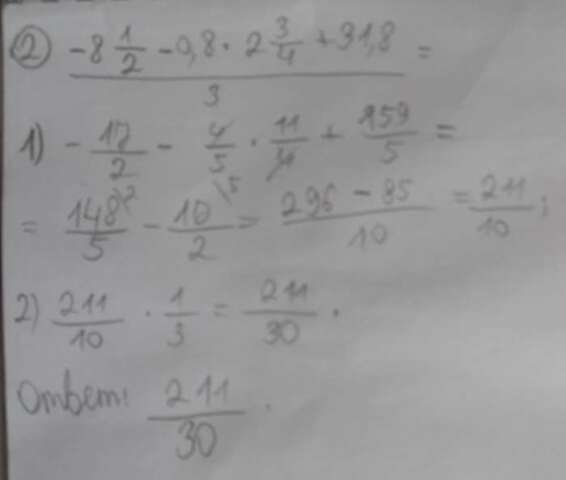 ② (-8 1/2 - 0,8 · 2 3/4 + 31,8) / 3 =
1) - 17/2 - 4/5 · 11/4 + 159/5 =
= 148/5 \2 - 10/2 \5 = (296 - 85)/10 = 211/10 ;
2) 211/10 · 1/3 = 211/30 .
Ответ: 211/30 .